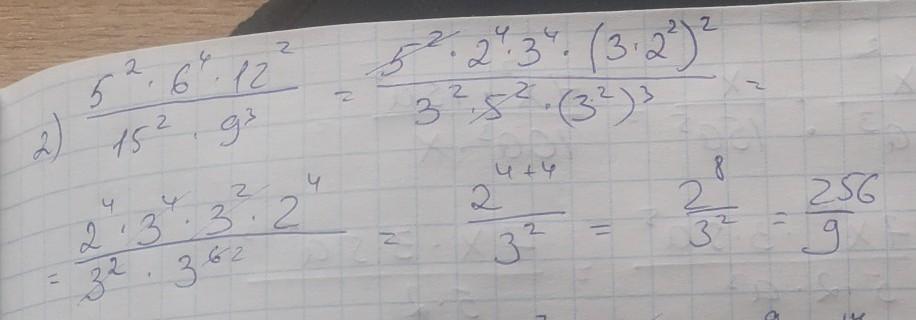 2) (5² · 6⁴ · 12²) / (15² · 9³) = (5² · 2⁴ · 3⁴ · (3 · 2²)²) / (3² · 5² · (3²)³) =
= (2⁴ · 3⁴ · 3² · 2⁴) / (3² · 3⁶ ²) = 2⁴⁺⁴ / 3² = 2⁸ / 3² = 256 / 9